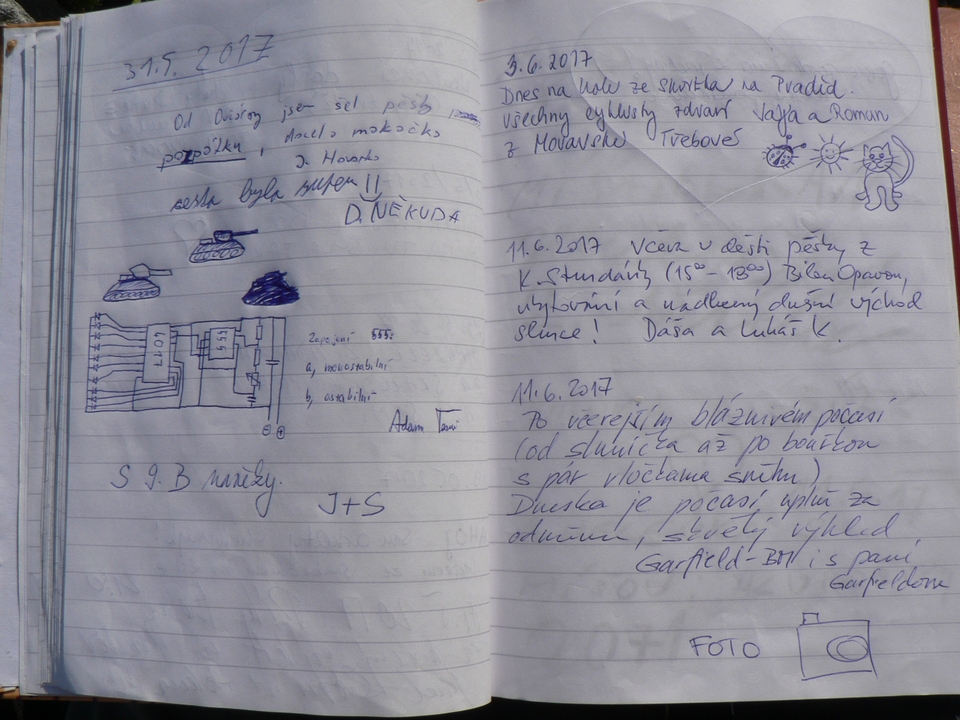 31.5. 2017
Od Ovčárny jsem šel pěšky
pozpátku, docela makačka
cesta byla super!!
D. NĚKUDA
4017
555
Zapojení 555:
a, monostabilní
b, astabilní
Adam
S 9.B
J+S
3.6.2017
Dnes na kolu ze na Praděd.
všechny cyklisty zdraví a Roman
z Moravské Třebové
11.6.2017 Včera v dešti pěšky z
K. Studánky (15⁰⁰-18⁰⁰) Bílou Opavou,
ubytování a nádherný východ
slunce! Dáša a Lukáš K.
11.6.2017
Po včerejším bláznivém počasí
(od sluníčka až po bouřkou
s pár vločkama sněhu)
Dneska je počasí úplně za
odměnu, skvělý výhled
Garfield-BM i s paní
Garfieldovou
FOTO